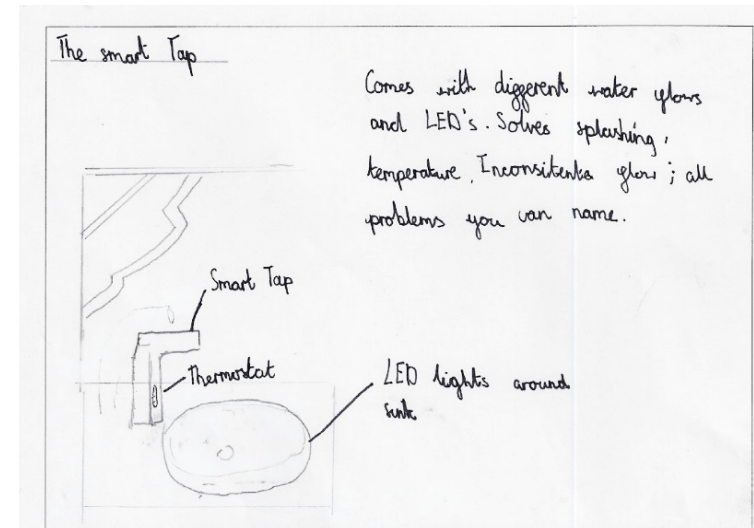 The smart Tap
Comes with different water flows
and LED's. Solves splashing,
temperature, Inconsitente flow ; all
problems you can name.
Smart Tap
Thermostat
LED lights around
sink